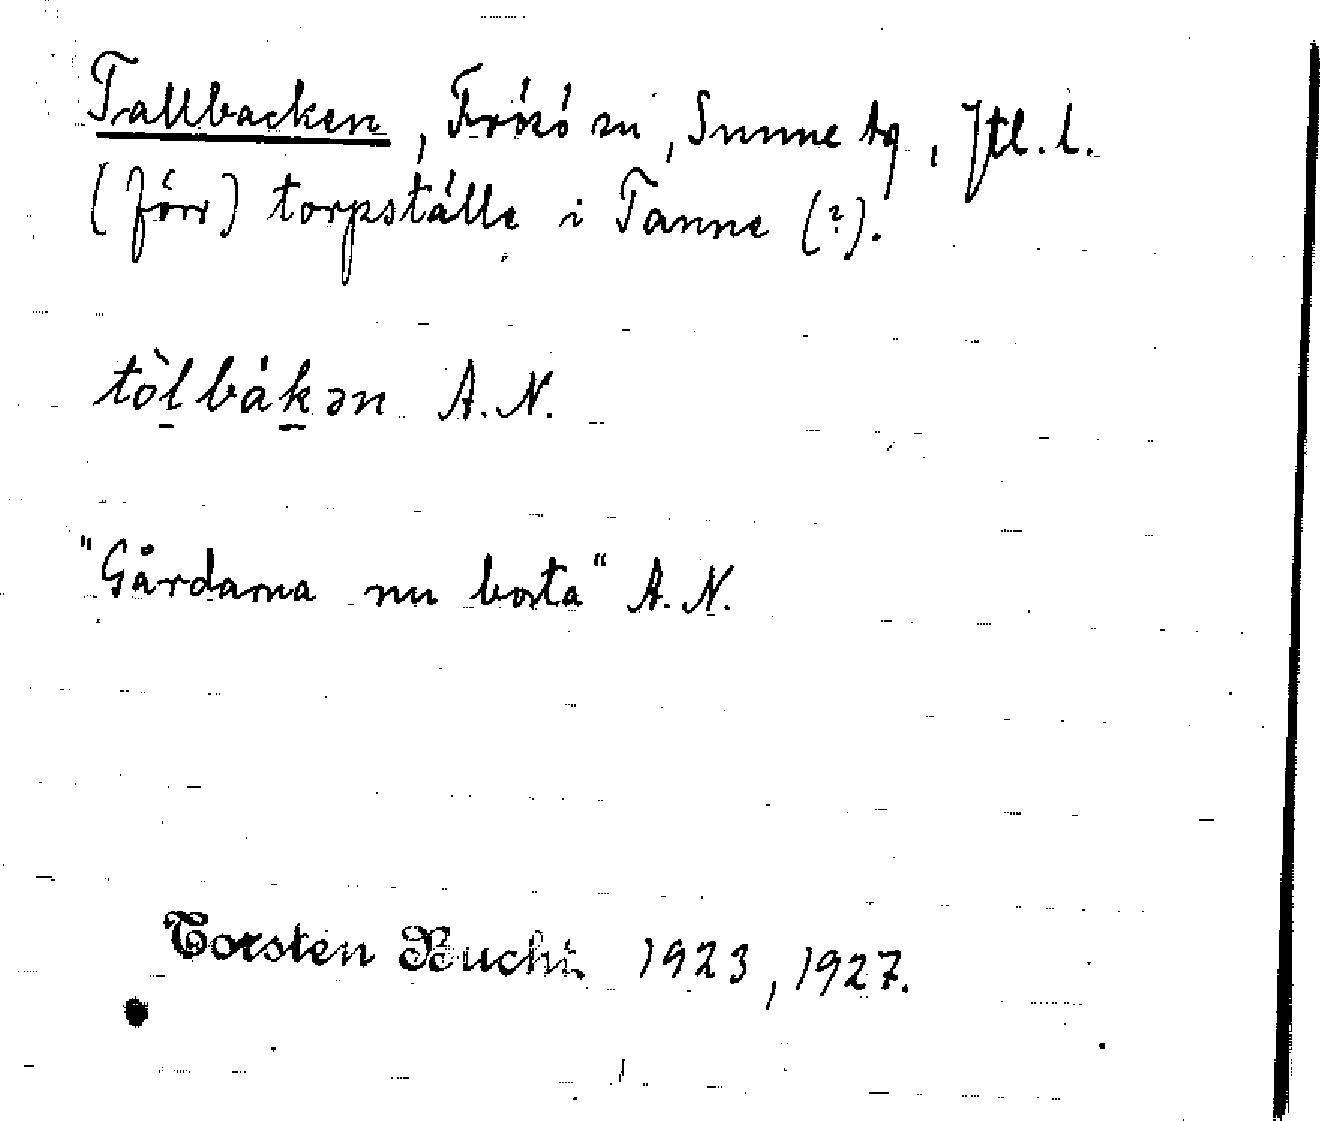 Tallbacken, Frösö sn, Sunne tg, Jtl. l.
(förr) torpställe i Tanne (?).
tòlbákən A.N.
"Gårdarna nu borta" A.N.
Torsten Bucht 1923, 1927.